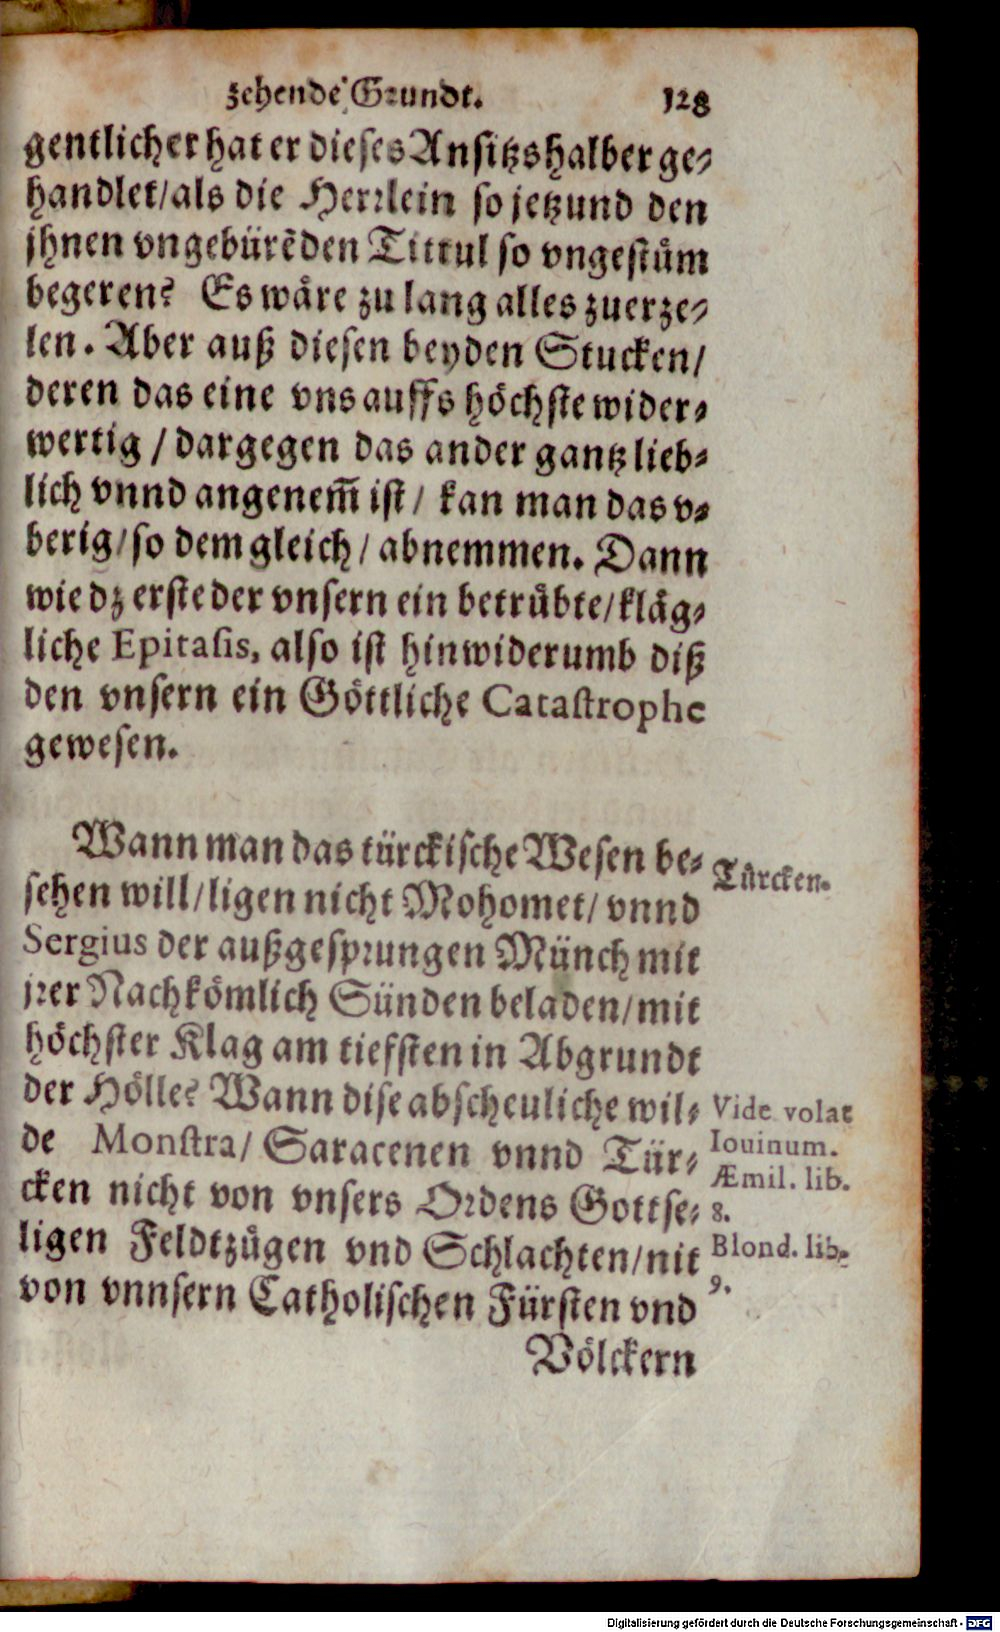 zehende Grundt. 128
gentlicher hat er dieses Ansitzs halber ge⸗
handlet/als die Herrlein so jetzund den
jhnen vngebürẽden Tittul so vngestům
begeren? Es wåre zu lang alles zuerze⸗
len. Aber auß diesen beyden Stucken/
deren das eine vns auffs höchste wider⸗
wertig / dargegen das ander gantz lieb⸗
lich vnnd angenem̃ ist / kan man das v⸗
berig/so dem gleich / abnemmen. Dann
wie dz erste der vnsern ein betrůbte/klåg⸗
liche Epitasis, also ist hinwiderumb diß
den vnsern ein Göttliche Catastrophe
gewesen.
Wann man das türckische Wesen be⸗
sehen will/ligen nicht Mohomet/ vnnd
Sergius der außgesprungen Münch mit
jrer Nachkömlich Sünden beladen/mit
höchster Klag am tiefsten in Abgrundt
der Hölle? Wann dise abscheuliche wil⸗
de Monstra/ Saracenen vnnd Tür⸗
cken nicht von vnsers Ordens Gottse⸗
ligen Feldtzůgen vnd Schlachten/nit
von vnnsern Catholischen Fürsten vnd
Völckern
Türcken.
Vide volat
Iouinum.
Æmil. lib.
8.
Blond. lib.
9.
Digitalisierung gefördert durch die Deutsche Forschungsgemeinschaft - DFG